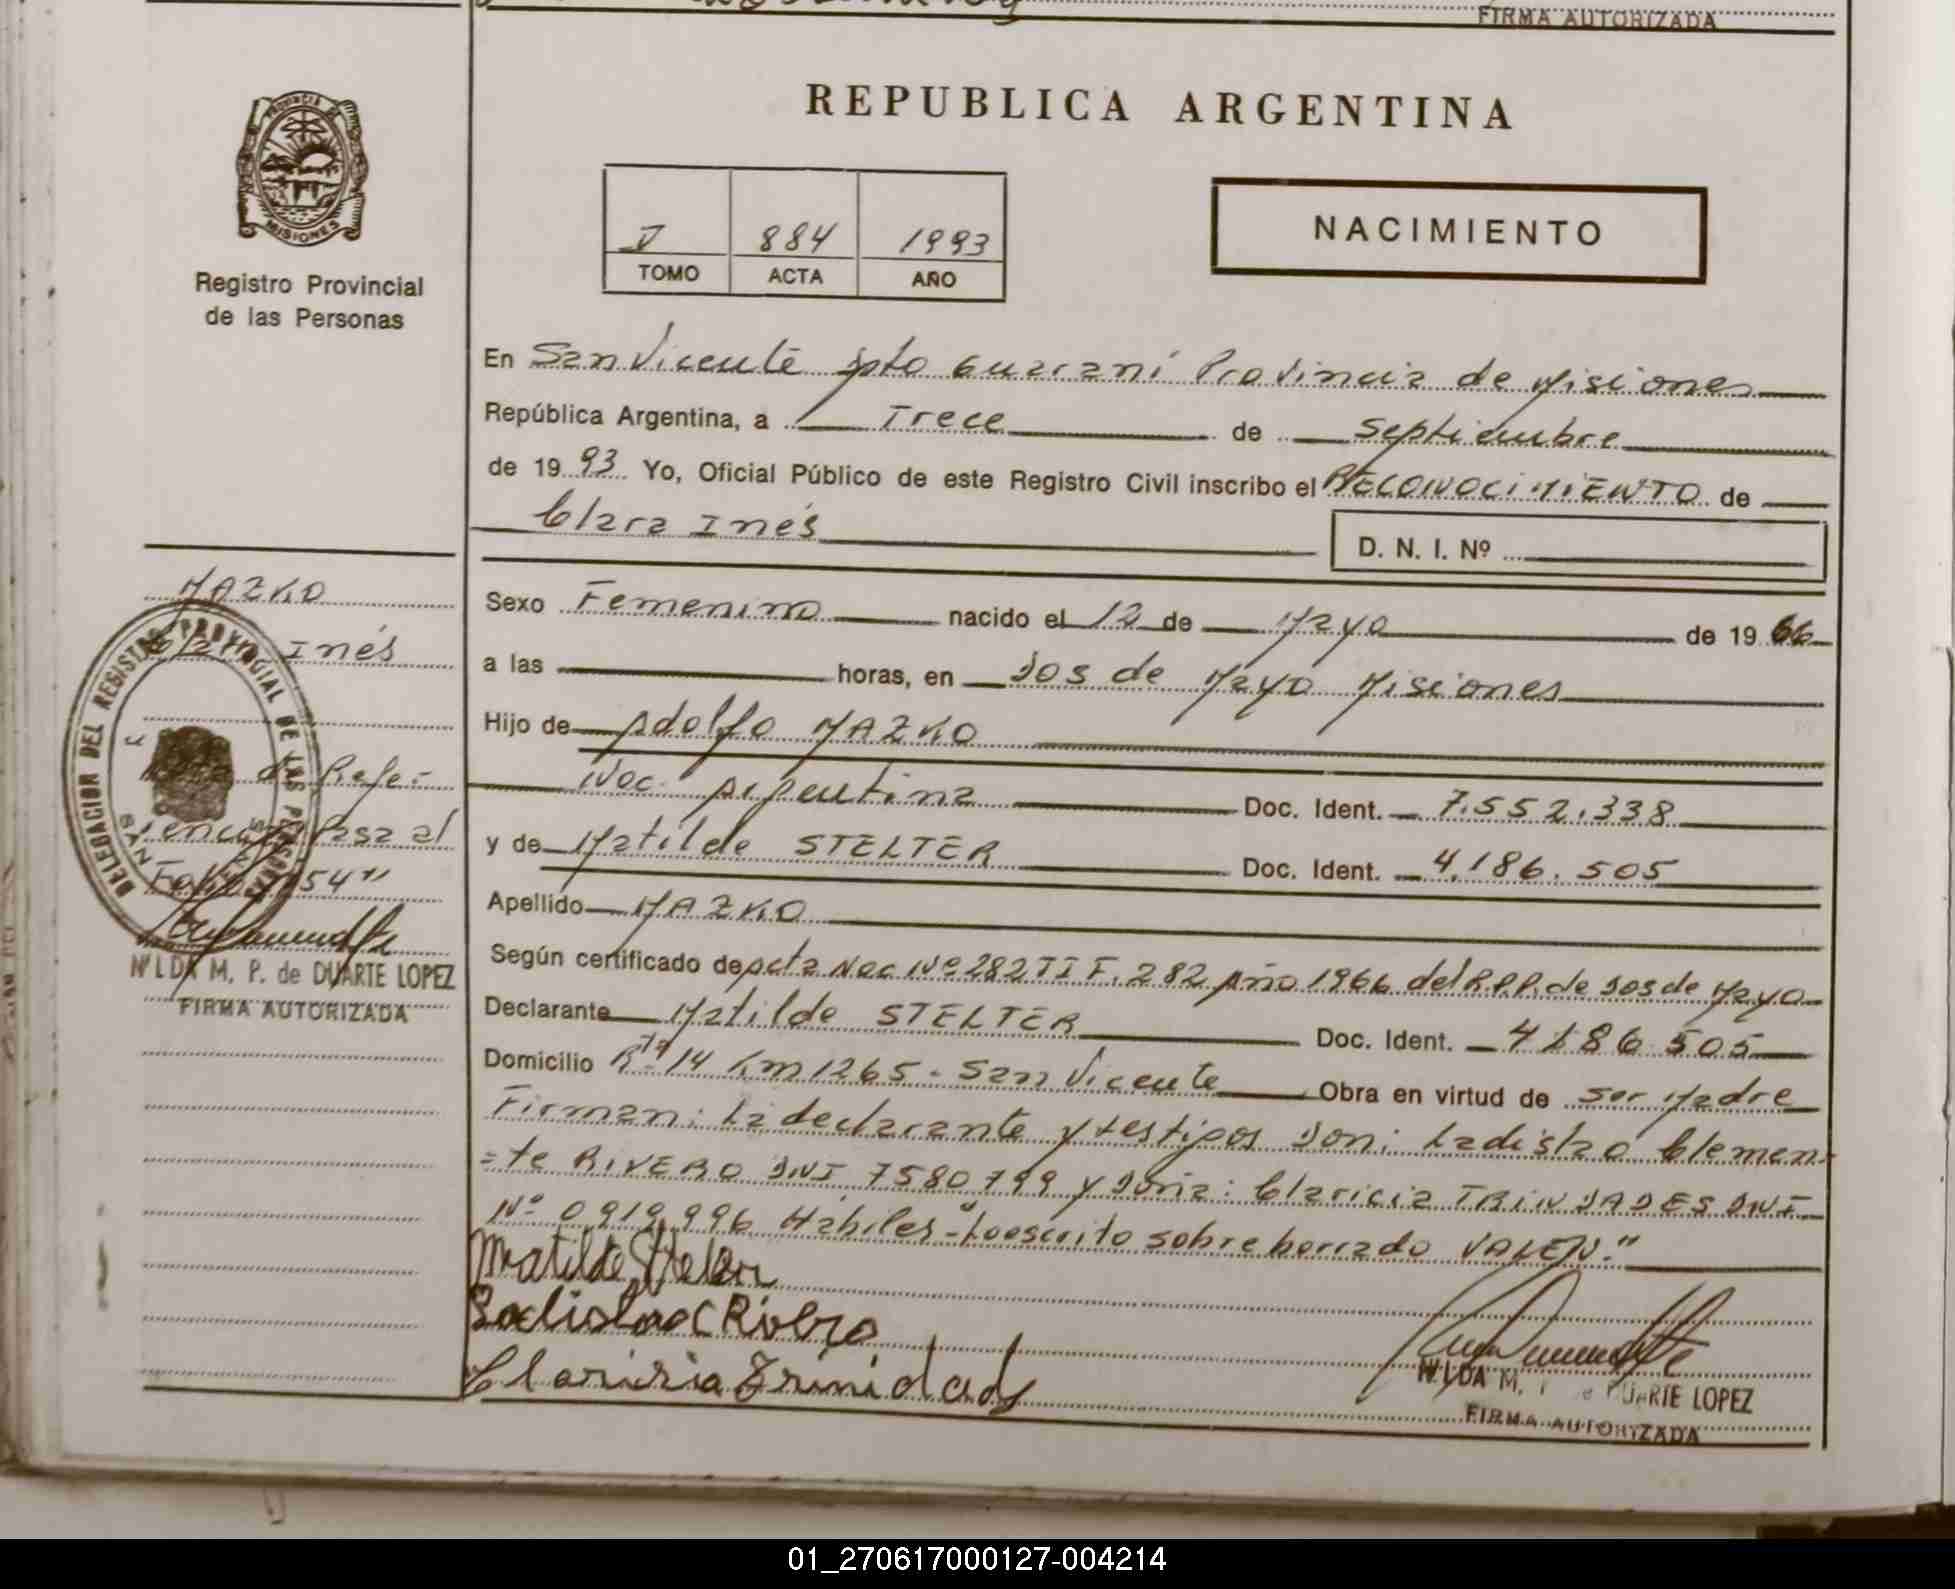 FIRMA AUTORIZADA
REPUBLICA ARGENTINA
PROVINCIA DE
MISIONES
Registro Provincial
de las Personas
V 884 1993
TOMO ACTA AÑO
NACIMIENTO
En San Vicente Dpto Guaraní Provincia de Misiones
República Argentina, a Trece de Septiembre
de 1993 Yo, Oficial Público de este Registro Civil inscribo el RECONOCIMIENTO de
Clara Inés
D. N. I. Nº
Sexo Femenino nacido el 12 de Mayo de 1966
a las horas, en Dos de Mayo Misiones
Hijo de Adolfo MAZKO
Nac. Argentina Doc. Ident. 7.552.338
y de Matilde STELTER Doc. Ident. 4.186.505
Apellido MAZKO
Según certificado de Acta Nac Nº 282 TI F. 282 Año 1966 del R.P.P. de Dos de Mayo
Declarante Matilde STELTER Doc. Ident. 4186505
Domicilio Rta 14 Km 1265 - San Vicente Obra en virtud de ser Madre
Firman: La declarante y testigos Don: Ladislao Clemen-
=te RIVERO DNI 7580799 y Doña: Claricia TRINDADES DNI
Nº 0919996 Hábiles - Lo escrito sobre borrado VALEN."
Matilde Stelter
Ladislao C Rivero
Claricia Trinidads
NILDA M. P. de DUARTE LOPEZ
FIRMA AUTORIZADA
MAZKO
Clara Inés
DELEGACION DEL REGISTRO PROVINCIAL DE LAS PERSONAS
SAN
de Refe=
rencia Pasa al
Folio "54"
NILDA M. P. de DUARTE LOPEZ
FIRMA AUTORIZADA
01_270617000127-004214